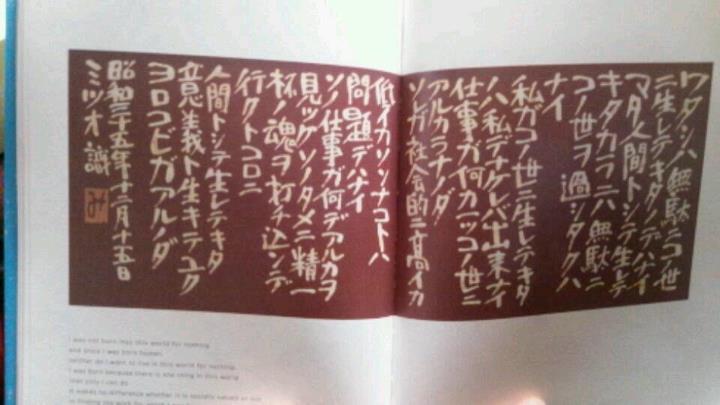 ワタシハ無駄ニコノ世
ニ生レテキタノデハナイ
マタ人間トシテ生レテ
キタカラニハ無駄ニ
コノ世ヲ過シタクハ
ナイ
私ガコノ世ニ生レテキタ
ノハ私デナケレバ出来ナイ
仕事ガ何カ一ツコノ世ニ
アルカラナノダ
ソレガ社会的ニ高イカ
低イカソンナコトハ
問題デハナイ
ソノ仕事ガ何デアルカヲ
見ツケソノタメニ精一
杯ノ魂ヲ打チ込ンデ
行クトコロニ
人間トシテ生レテキタ
意義ト生キテユク
ヨロコビガアルノダ
昭和三十五年十二月十五日
ミツオ識
み
I was not born into this world for nothing
and since I was born human,
neither do I want to live in this world for nothing.
I was born because there is one thing in this world
that only I can do
It makes no difference whether it is socially valued or not